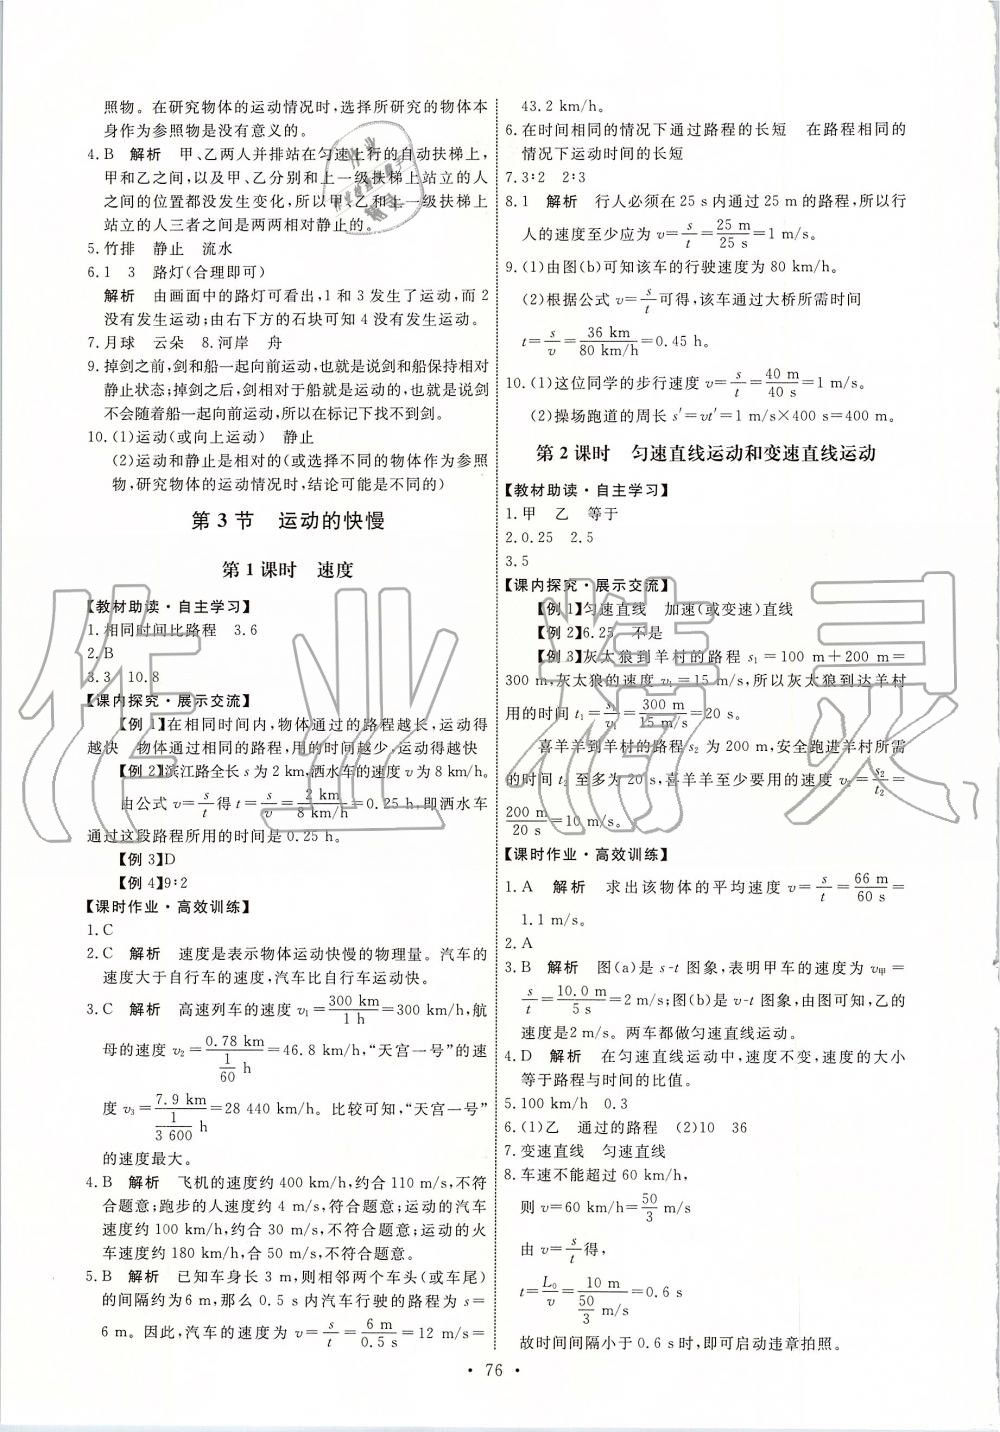 照物。在研究物体的运动情况时,选择所研究的物体本
身作为参照物是没有意义的。
4.B 解析 甲、乙两人并排站在匀速上行的自动扶梯上,
甲和乙之间,以及甲、乙分别和上一级扶梯上站立的人
之间的位置都没发生变化,所以甲、乙和上一级扶梯上
站立的人三者之间是两两相对静止的。
5.竹排 静止 流水
6.1 3 路灯(合理即可)
解析 由画面中的路灯可看出,1和3发生了运动,而2
没有发生运动;由右下方的石块可知4没有发生运动。
7.月球 云朵 8.河岸 舟
9.掉剑之前,剑和船一起向前运动,也就是说剑和船保持相对
静止状态;掉剑之后,剑相对于船就是运动的,也就是说剑
不会随着船一起向前运动,所以在标记下找不到剑。
10.(1)运动(或向上运动) 静止
(2)运动和静止是相对的(或选择不同的物体作为参照
物,研究物体的运动情况时,结论可能是不同的)
第3节 运动的快慢
第1课时 速度
【教材助读·自主学习】
1.相同时间比路程 3.6
2.B
3.3 10.8
【课内探究·展示交流】
【例1】在相同时间内,物体通过的路程越长,运动得
越快 物体通过相同的路程,用的时间越少,运动得越快
【例2】滨江路全长s为2 km,洒水车的速度v为8 km/h。
由公式v=s/t得t=s/v=2 km/8 km/h=0.25 h,即洒水车
通过这段路程所用的时间是0.25 h。
【例3】D
【例4】9∶2
【课时作业·高效训练】
1.C
2.C 解析 速度是表示物体运动快慢的物理量。汽车的
速度大于自行车的速度,汽车比自行车运动快。
3.C 解析 高速列车的速度v₁=300 km/1 h=300 km/h,航
母的速度v₂=0.78 km/(1/60 h)=46.8 km/h,“天宫一号”的速
度v₃=7.9 km/(1/3 600 h)=28 440 km/h。比较可知,“天宫一号”
的速度最大。
4.B 解析 飞机的速度约400 km/h,约合110 m/s,不符
合题意;跑步的人速度约4 m/s,符合题意;运动的汽车
速度约100 km/h,约合30 m/s,不符合题意;运动的火
车速度约180 km/h,合50 m/s,不符合题意。
5.B 解析 已知车身长3 m,则相邻两个车头(或车尾)
的间隔约为6 m,那么0.5 s内汽车行驶的路程为s=
6 m。因此,汽车的速度为v=s/t=6 m/0.5 s=12 m/s=
43.2 km/h。
6.在时间相同的情况下通过路程的长短 在路程相同的
情况下运动时间的长短
7.3∶2 2∶3
8.1 解析 行人必须在25 s内通过25 m的路程,所以行
人的速度至少应为v=s/t=25 m/25 s=1 m/s。
9.(1)由图(b)可知该车的行驶速度为80 km/h。
(2)根据公式v=s/t可得,该车通过大桥所需时间
t=s/v=36 km/80 km/h=0.45 h。
10.(1)这位同学的步行速度v=s/t=40 m/40 s=1 m/s。
(2)操场跑道的周长s′=vt′=1 m/s×400 s=400 m。
第2课时 匀速直线运动和变速直线运动
【教材助读·自主学习】
1.甲 乙 等于
2.0.25 2.5
3.5
【课内探究·展示交流】
【例1】匀速直线 加速(或变速)直线
【例2】6.25 不是
【例3】灰太狼到羊村的路程s₁=100 m+200 m=
300 m,灰太狼的速度v₁=15 m/s,所以灰太狼到达羊村
用的时间t₁=s₁/v₁=300 m/15 m/s=20 s。
喜羊羊到羊村的路程s₂为200 m,安全跑进羊村所需
的时间t₂至多为20 s,喜羊羊至少要用的速度v₂=s₂/t₂=
200 m/20 s=10 m/s。
【课时作业·高效训练】
1.A 解析 求出该物体的平均速度v=s/t=66 m/60 s=
1.1 m/s。
2.A
3.B 解析 图(a)是s-t图象,表明甲车的速度为v甲=
s/t=10.0 m/5 s=2 m/s;图(b)是v-t图象,由图可知,乙的
速度是2 m/s。两车都做匀速直线运动。
4.D 解析 在匀速直线运动中,速度不变,速度的大小
等于路程与时间的比值。
5.100 km/h 0.3
6.(1)乙 通过的路程 (2)10 36
7.变速直线 匀速直线
8.车速不能超过60 km/h,
则v=60 km/h=50/3 m/s,
由v=s/t得,
t=L₀/v=10 m/(50/3 m/s)=0.6 s
故时间间隔小于0.6 s时,即可启动违章拍照。
· 76 ·
作业精灵